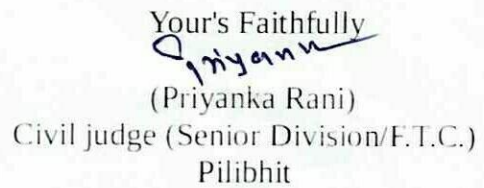 Your's Faithfully
Priyanka
(Priyanka Rani)
Civil judge (Senior Division/F.T.C.)
Pilibhit